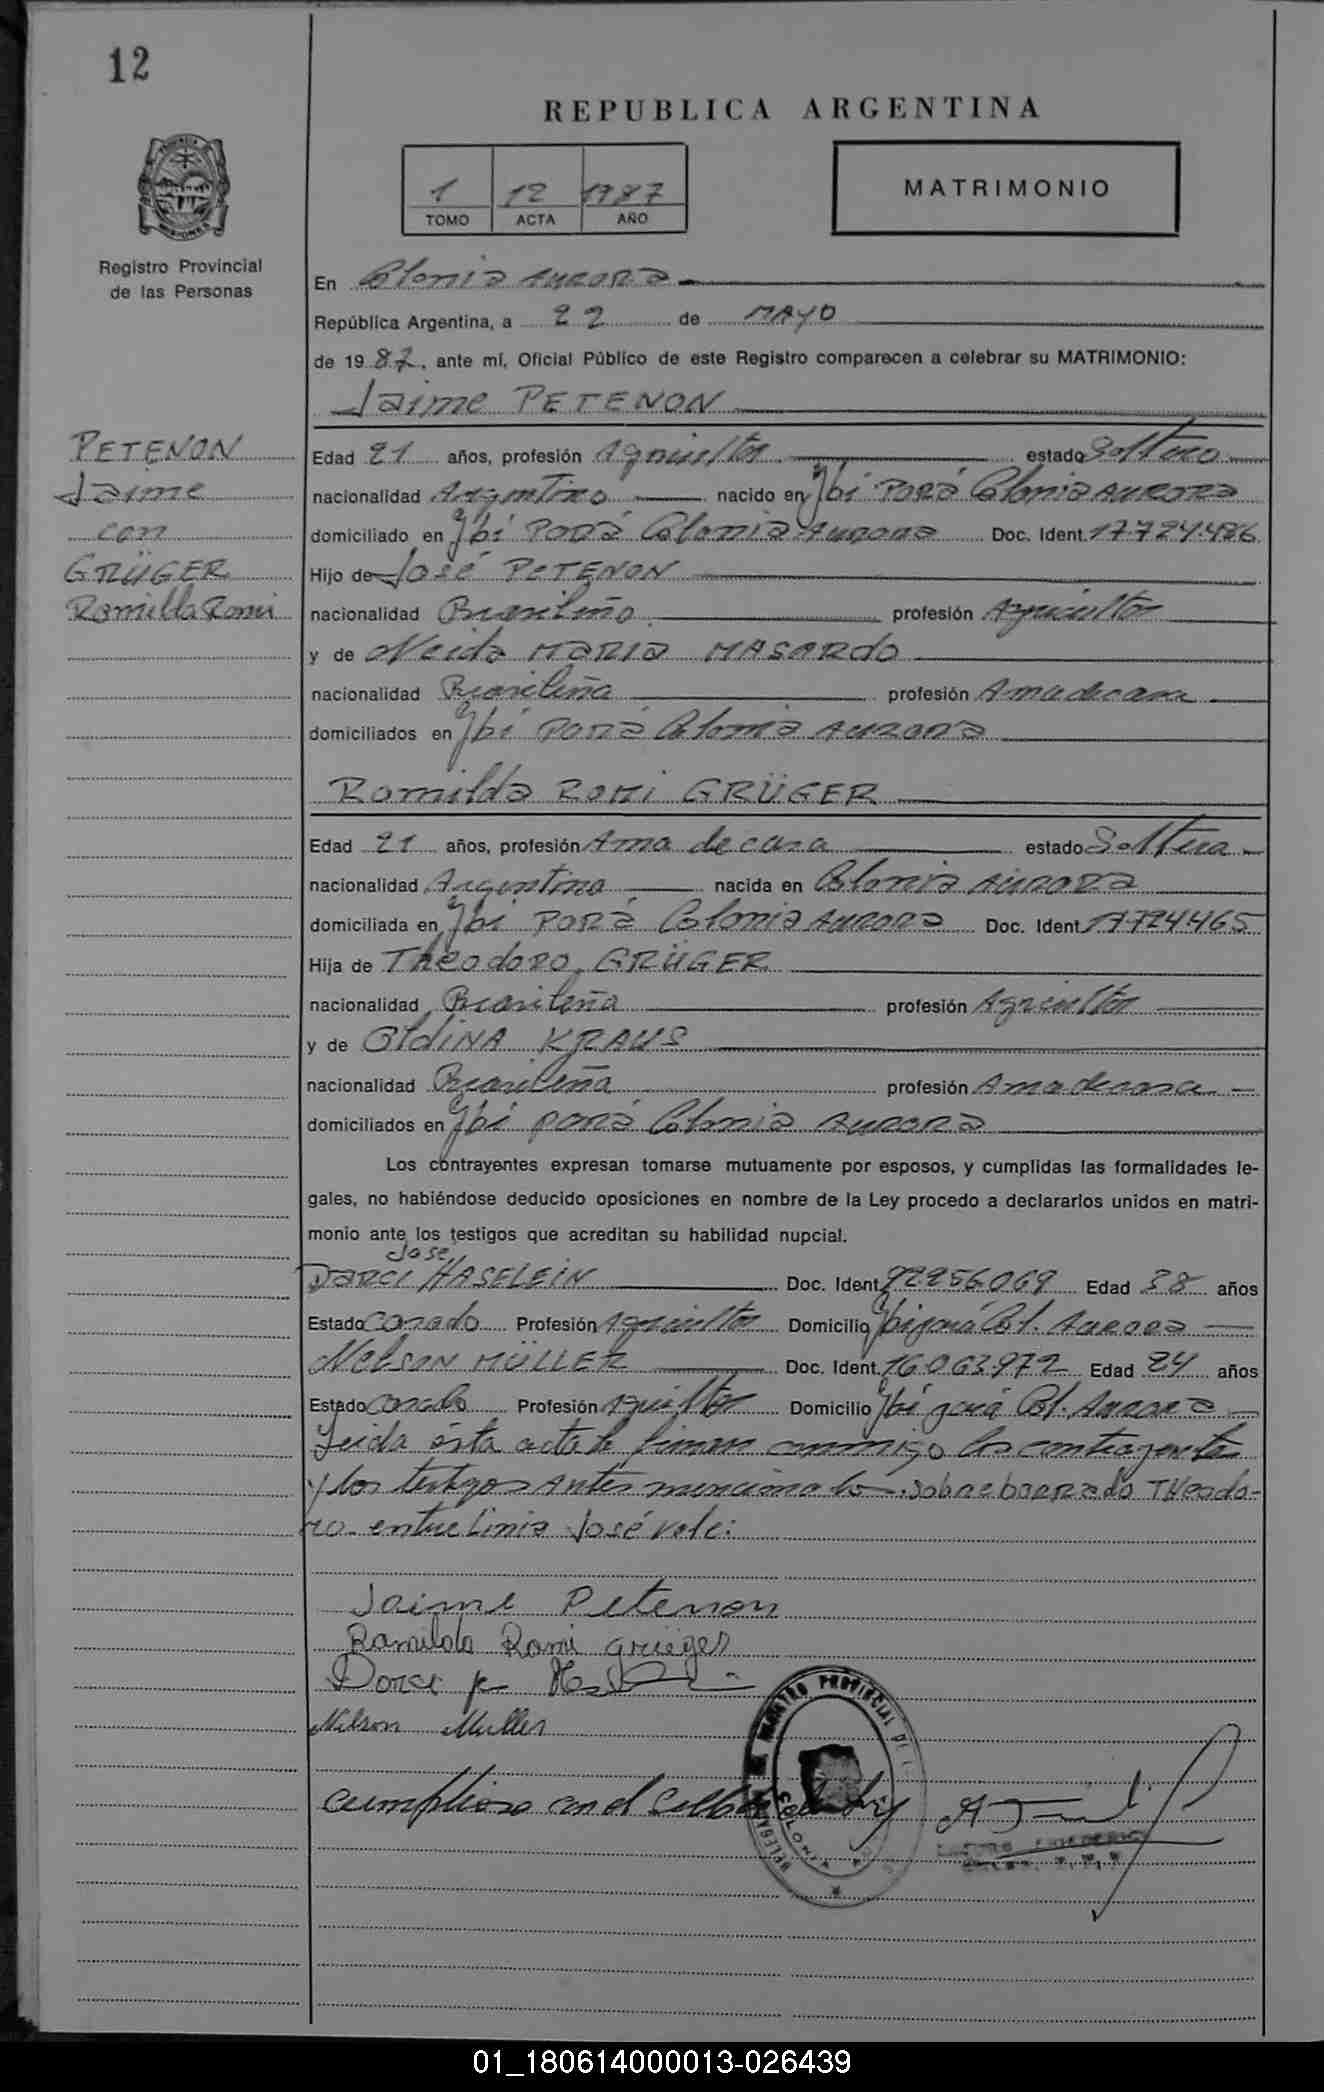 12
REPUBLICA ARGENTINA
1 12 1987
TOMO ACTA AÑO
MATRIMONIO
Registro Provincial
de las Personas
En Colonia Aurora
República Argentina, a 22 de MAYO
de 1987, ante mí, Oficial Público de este Registro comparecen a celebrar su MATRIMONIO:
Jaime PETENON
PETENON
Jaime
con
GRÜGER
Romilda Romi
Edad 21 años, profesión Agricultor estado Soltero
nacionalidad Argentino nacido en Ybi Porá Colonia AURORA
domiciliado en Ybi Porá Colonia Aurora Doc. Ident. 17.724.486
Hijo de José PETENON
nacionalidad Brasileño profesión Agricultor
y de Neida MARIA MASARdo
nacionalidad Brasileña profesión Ama de casa
domiciliados en Ybi Porá Colonia AURORA
Romilda ROMI GRÜGER
Edad 21 años, profesión Ama de casa estado Soltera
nacionalidad Argentina nacida en Colonia AURORA
domiciliada en Ybi PORÁ Colonia AURORA Doc. Ident. 17.724.465
Hija de THeodoro GRÜGER
nacionalidad Brasileña profesión Agricultor
y de OldiNA KRAUS
nacionalidad Brasileña profesión Ama de casa
domiciliados en Ybi porá Colonia AURORA
Los contrayentes expresan tomarse mutuamente por esposos, y cumplidas las formalidades le-
gales, no habiéndose deducido oposiciones en nombre de la Ley procedo a declararlos unidos en matri-
monio ante los testigos que acreditan su habilidad nupcial.
José
Darci HASELEIN Doc. Ident. 92256069 Edad 38 años
Estado casado Profesión Agricultor Domicilio Ybi porá Col. Aurora
Nelson MÜLLER Doc. Ident. 16.063.972 Edad 24 años
Estado casado Profesión Agricultor Domicilio Ybi porá Col. Aurora
Leida ésta acta la firman conmigo los contrayentes
y los testigos antes mencionados. Sobreborrado THeodo-
ro entre linia José vale:
Jaime Petenon
Romilda Romi grüeger
Darci
Nelson Muller
REGISTRO PROVINCIAL DE
DELEGA
COLONIA
cumplioso con el
01_180614000013-026439